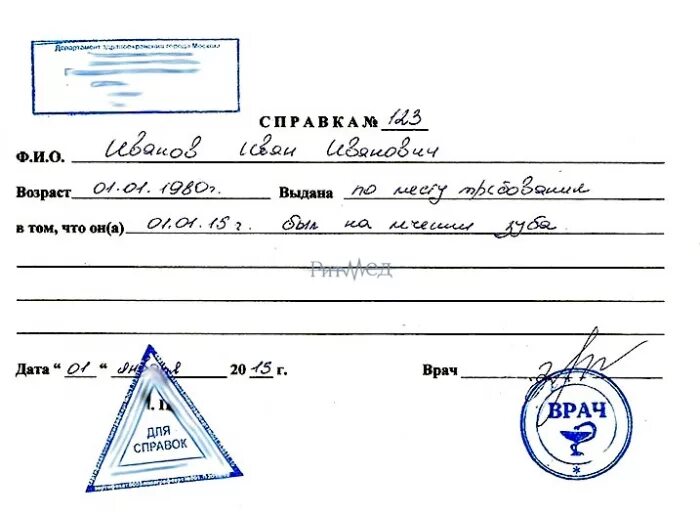 Департамент здравоохранения города Москвы
СПРАВКА № 123
Ф.И.О. Иванов Иван Иванович
Возраст 01.01.1980г. Выдана по месту требования
в том, что он(а) 01.01.15 г. был на лечении зуба
РитМед
Дата “ 01 “ января 20 15 г. Врач
ДЛЯ
СПРАВОК
ВРАЧ